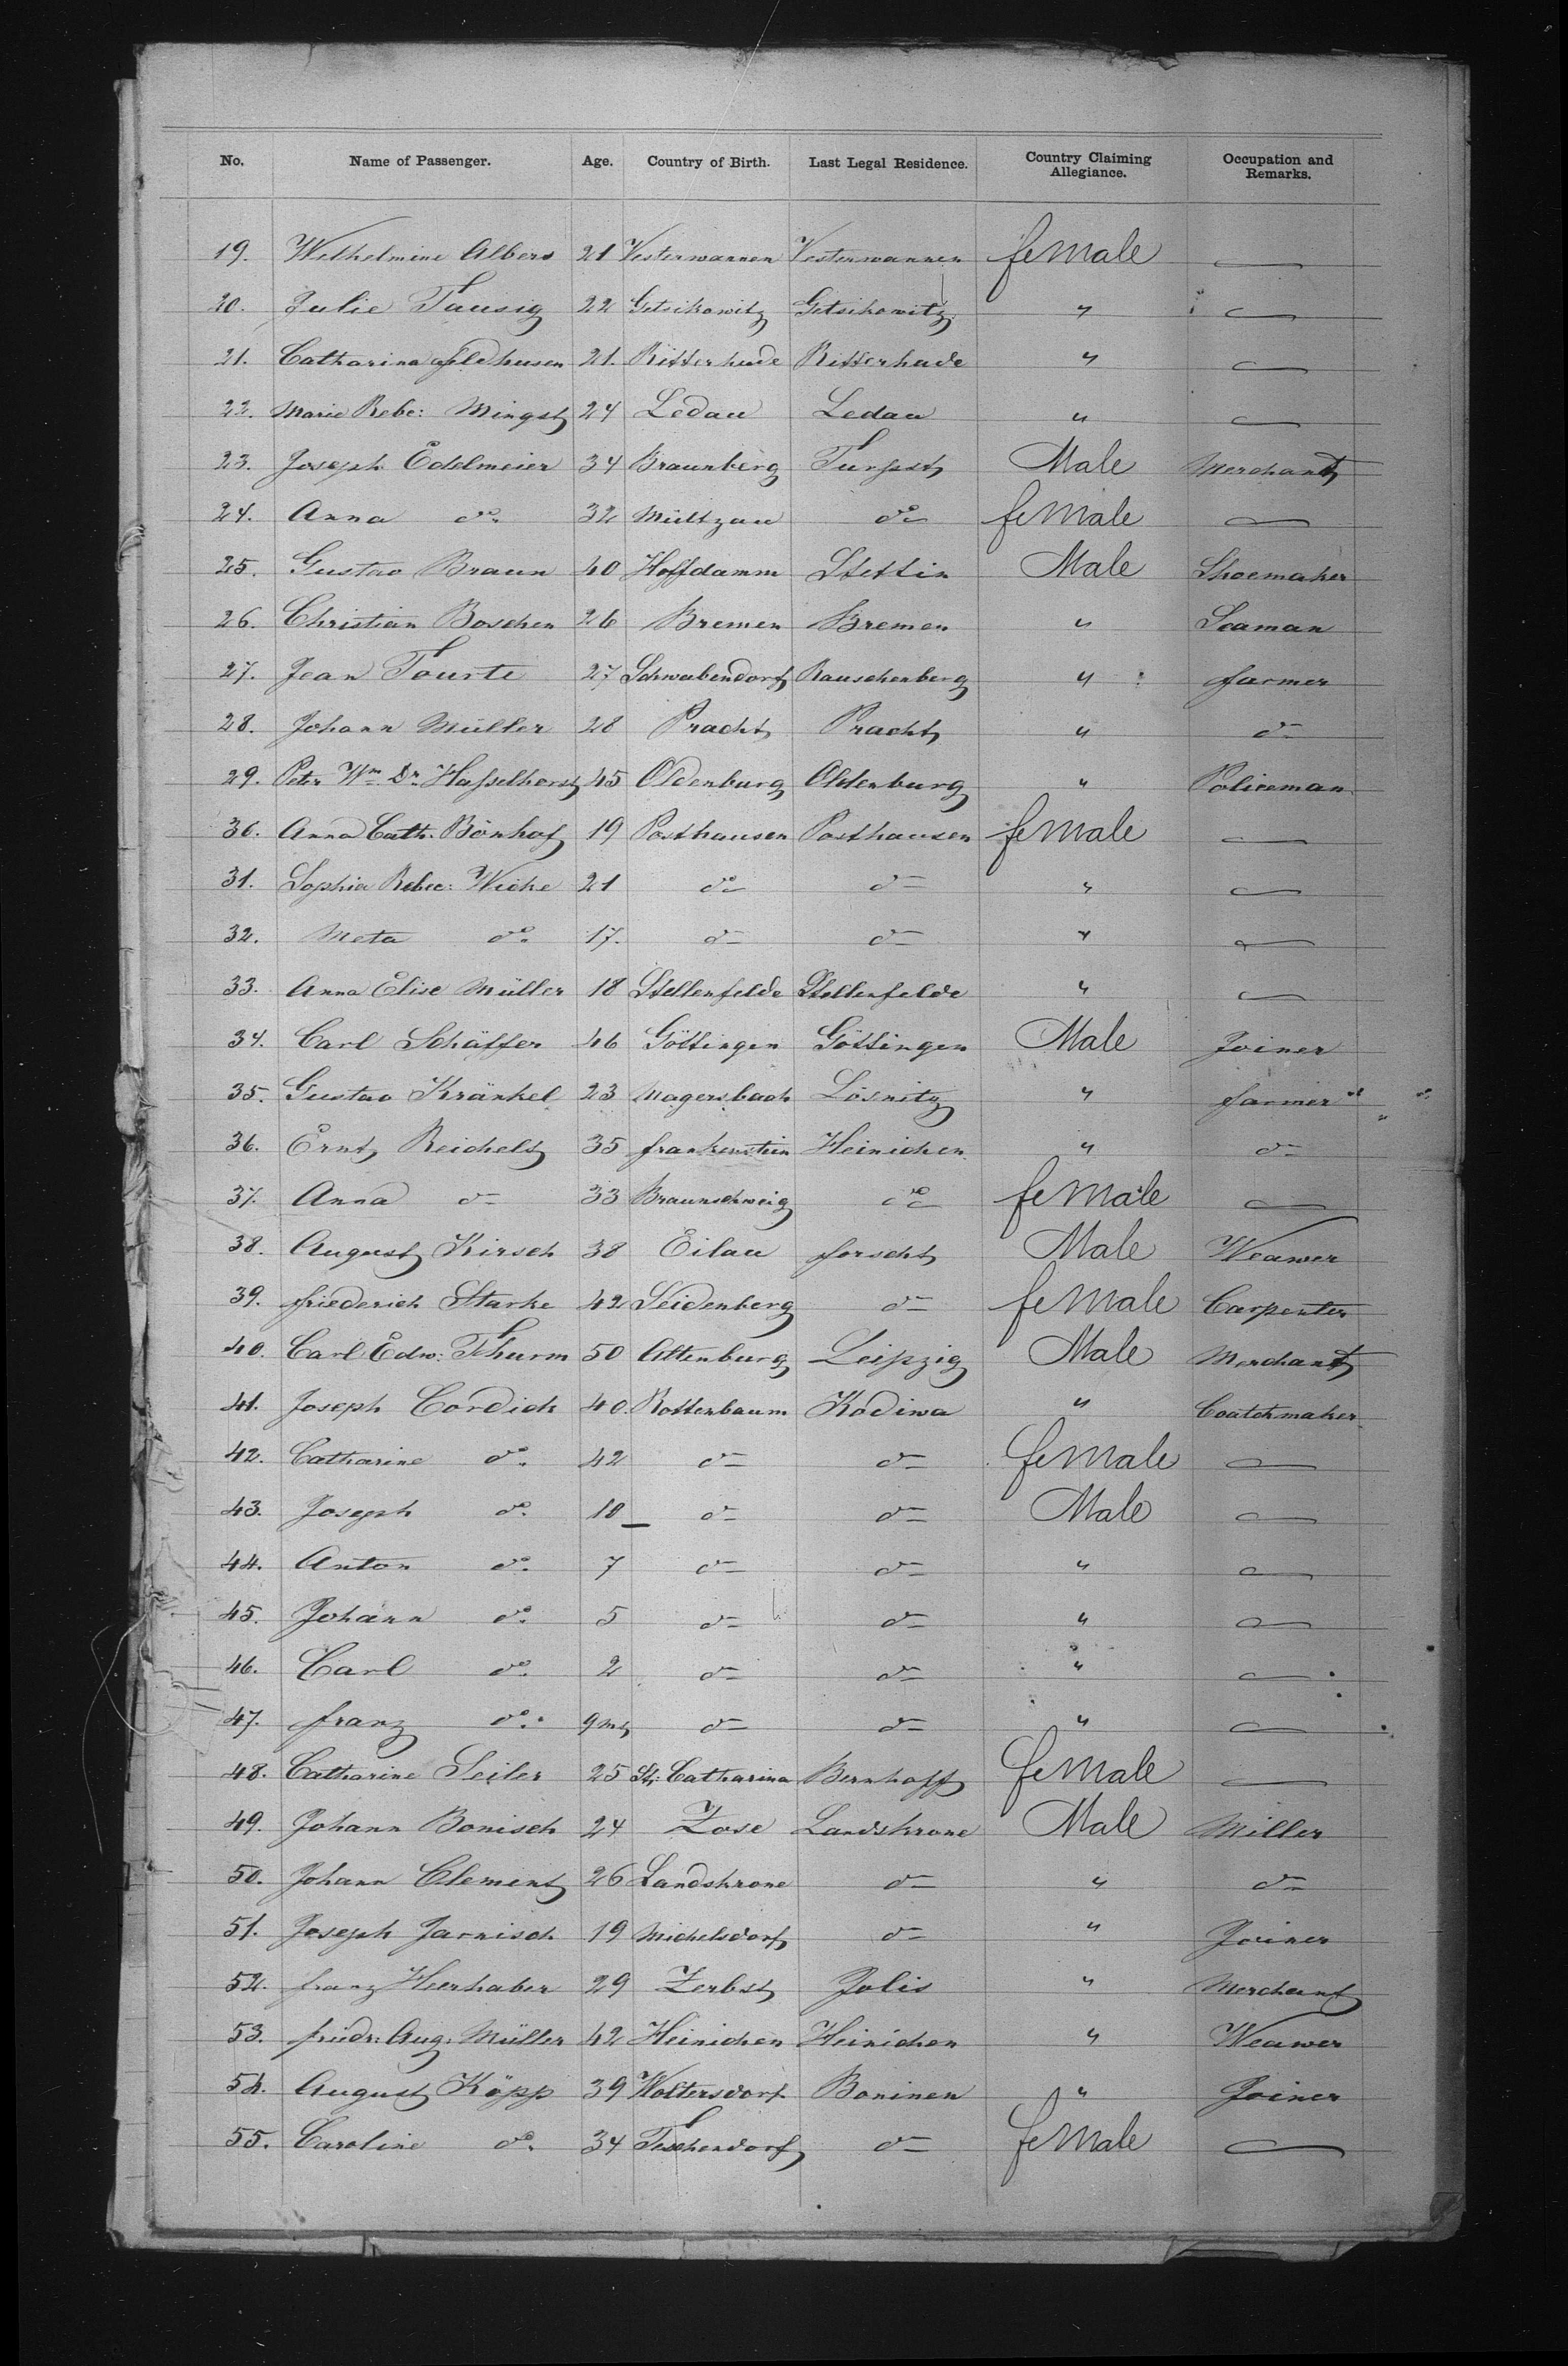 No. Name of Passenger. Age. Country of Birth. Last Legal Residence. Country Claiming Allegiance. Occupation and Remarks.
19. Wilhelmine Albers 21 Westerwannen Westerwannen female —
20. Julie Tausig 22 Getsikowitz Getsikowitz " —
21. Catharina Feldhusen 21. Ritterhude Ritterhude " —
22. Marie Rebc: Mingst 24 Ledau Ledau " —
23. Joseph Edelmeier 34 Braunberg Turpst Male Merchant
24. Anna do. 32 Mültzau do female —
25. Gustav Braun 40 Hoffdamm Stettin Male Shoemaker
26. Christian Boschen 26 Bremen Bremen " Seaman
27. Jean Tourte 27 Schwabendorf Rauschenberg " farmer
28. Johann Müller 28 Pracht Pracht " do
29. Peter Wm Dr. Hasselhorst 45 Oldenburg Oldenburg " Policeman
30. Anna Cath. Bönhof 19 Posthausen Posthausen female —
31. Sophia Rebec: Wicke 21 do do " —
32. Meta do. 17. do do " —
33. Anna Elise Müller 18 Stellenfelde Stellenfelde " —
34. Carl Schäffer 46 Göttingen Göttingen Male Joiner
35. Gustav Kränkel 23 Magersbach Lösnitz " farmer
36. Ernst Reichelt 35 frankenstein Heinichen " do
37. Anna do 33 Braunschweig do female —
38. August Kirsch 38 Eilau forscht Male Weawer
39. friederich Starke 42 Seidenberg do female Carpenter
40. Carl Edw: Thurm 50 Altenburg Leipzig Male Merchant
41. Joseph Cordick 40. Rottenbaum Kodiwa " Coatchmaker
42. Catharine do. 42 do do female —
43. Joseph do. 10 do do Male —
44. Anton do. 7 do do " —
45. Johann do. 5 do do " —
46. Carl do. 2 do do " —
47. franz do. 9 mt do do " —
48. Catharine Seiler 25 St: Catharina Bernhoff female —
49. Johann Bonisch 24 Zose Landskrone Male Miller
50. Johann Clement 26 Landskrone do " do
51. Joseph Jarnisch 19 Michelsdorf do " Joiner
52. franz Heerhaber 29 Zerbst Jolis " Merchant
53. friedr: Aug: Müller 42 Heinichen Heinichen " Weawer
54. August Köpp 39 Woltersdorf Boninen " Joiner
55. Caroline do. 34 Teschendorf do female —